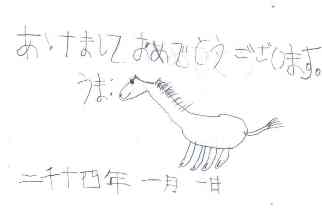 あけまして おめでとう ございます。
うま:
二千十四年 一月 一日